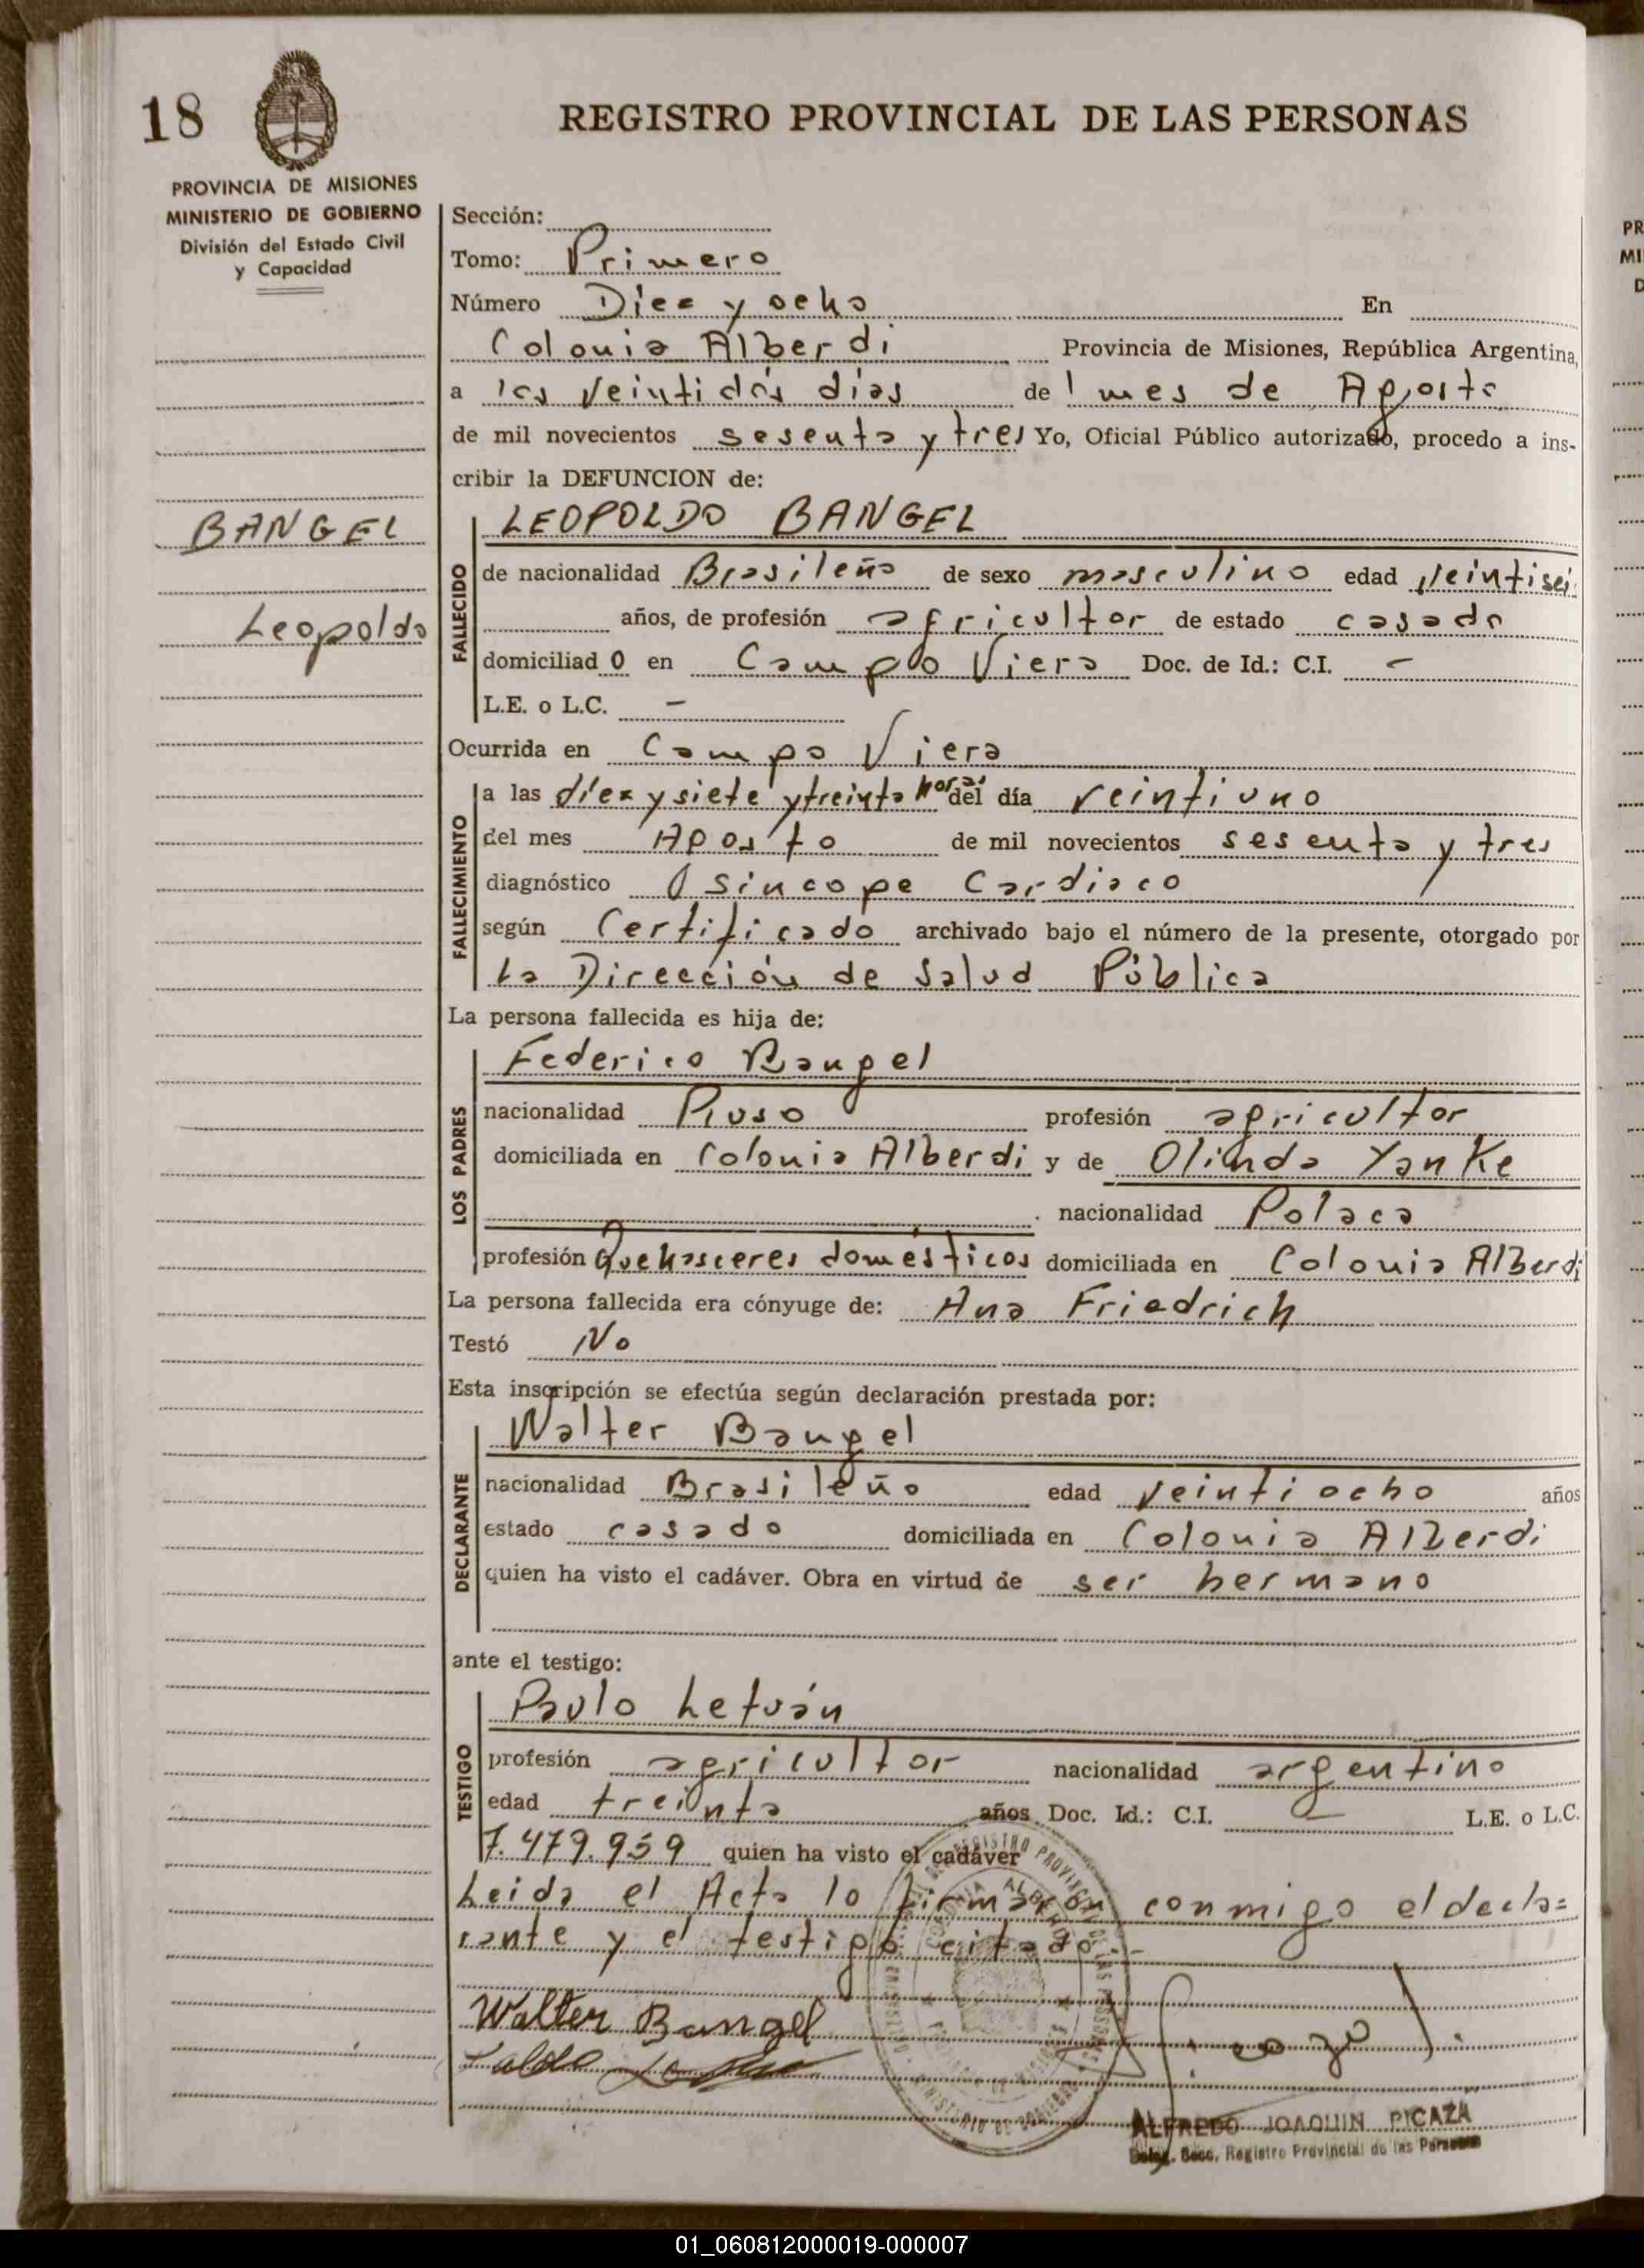 18
REGISTRO PROVINCIAL DE LAS PERSONAS
PROVINCIA DE MISIONES
MINISTERIO DE GOBIERNO
División del Estado Civil
y Capacidad
BANGEL
Leopoldo
Sección:
Tomo: Primero
Número Diez y ocho En
Colonia Alberdi Provincia de Misiones, República Argentina,
a los veintidós días del mes de Agosto
de mil novecientos sesenta y tres Yo, Oficial Público autorizado, procedo a ins-
cribir la DEFUNCION de:
FALLECIDO
LEOPOLDO BANGEL
de nacionalidad Brasileño de sexo masculino edad veintiseis
años, de profesión agricultor de estado casado
domiciliado en Campo Viera Doc. de Id.: C.I. -
L.E. o L.C. -
Ocurrida en Campo Viera
FALLECIMIENTO
a las diez y siete y treinta horas del día veintiuno
del mes Agosto de mil novecientos sesenta y tres
diagnóstico síncope Cardiaco
según Certificado archivado bajo el número de la presente, otorgado por
La Dirección de Salud Pública
La persona fallecida es hija de:
LOS PADRES
Federico Bangel
nacionalidad Ruso profesión agricultor
domiciliada en Colonia Alberdi y de Olinda Yanke
nacionalidad Polaca
profesión Quehasceres domésticos domiciliada en Colonia Alberdi
La persona fallecida era cónyuge de: Ana Friedrich
Testó No
Esta inscripción se efectúa según declaración prestada por:
DECLARANTE
Walter Bangel
nacionalidad Brasileño edad veintiocho años
estado casado domiciliada en Colonia Alberdi
quien ha visto el cadáver. Obra en virtud de ser hermano
ante el testigo:
TESTIGO
Paulo Letván
profesión agricultor nacionalidad argentino
edad treinta años Doc. Id.: C.I. L.E. o L.C.
7.479.959 quien ha visto el cadáver
Leida el Acta lo firmaron conmigo el decla=
rante y el testigo citado.-
Walter Bangel
ALFREDO JOAQUIN PICAZA
Deleg. Secc. Registro Provincial de las Personas
PR
MI
D
01_060812000019-000007